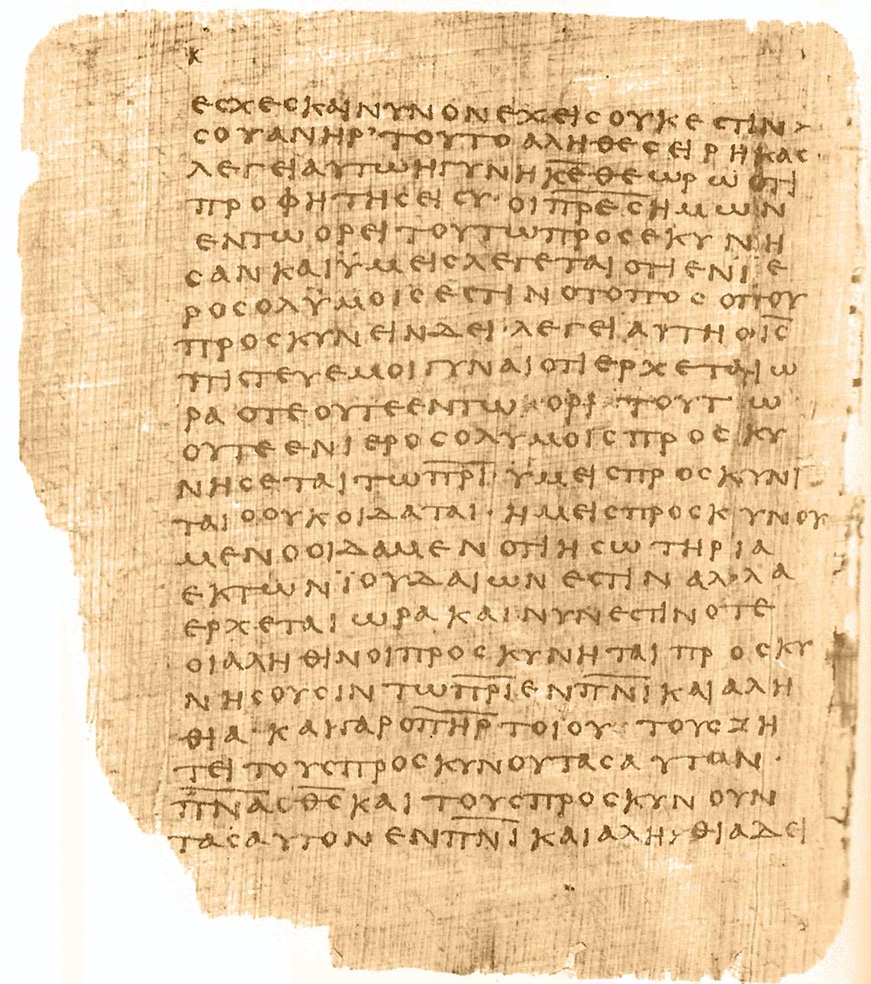 κ
εσχεσκαινυνονεχεισουκεστιν>
σουανηρ’τουτοαληθεσειρηκασ
λεγειαυτωηγυνηκ̅ε̅θεωρωοτι
προφητησεισυ·οιπ̅ρ̅ε̅σ̅ημων
εντωορειτουτωπροσεκυνη
σανκαιϋμεισλεγεταιοτιενϊε
ροσολϋμοισεστινοτοποσοπου
προσκυνεινδει·λεγειαυτηοι̅σ̅
πιστευεμοιγυναιοτιερχεταιω
ραοτεουτεεντωορι·τουτω
ουτεενιεροσολυμοισπροσκυ
νησεταιτωπ̅ρ̅ι̅·ϋμεισπροσκυνι
ταιοουκοιδαται·ημεισπροσκυνου
μενοοιδαμενοτιησωτηρια
εκτωνϊουδαιωνεστιναλλα
ερχεταιωρακαινυνεστινοτε
οιαληθινοιπροσκυνηταιπροσκυ
νησουσιντωπ̅ρ̅ι̅ενπ̅ν̅ι̅καιαλη
θια·καιγαροπ̅η̅ρ̅τοιου·τουσζη
τειτουσπροσκυνουτασαυτων·
π̅ν̅α̅ο̅θ̅σ̅καιτουσπροσκυνουν
τασαυτονενπ̅ν̅ι̅καιαληθιαδει